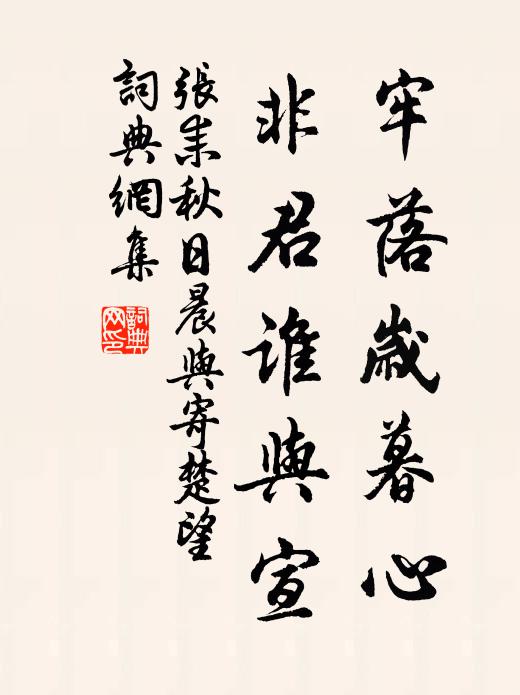 牢落歲暮心
非君誰與宣
張耒秋日晨興寄楚望
詞典網集
詞典
网印